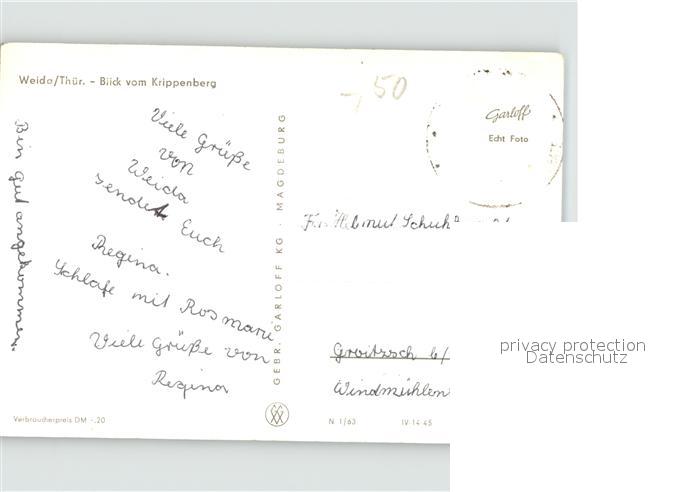 Weida/Thür. – Blick vom Krippenberg
-,50
Garloff
Echt Foto
Viele Grüße
von
Weida
sendet Euch
Regina.
Schlafe mit Rosmarie
Viele Grüße von
Regina
Bin gut angekommen.
GEBR. GARLOFF KG · MAGDEBURG
Helmut Schuh
Groitzsch b/
Windmühlen
privacy protection
Datenschutz
Verbraucherpreis DM -.20
N 1/63 IV-14-45